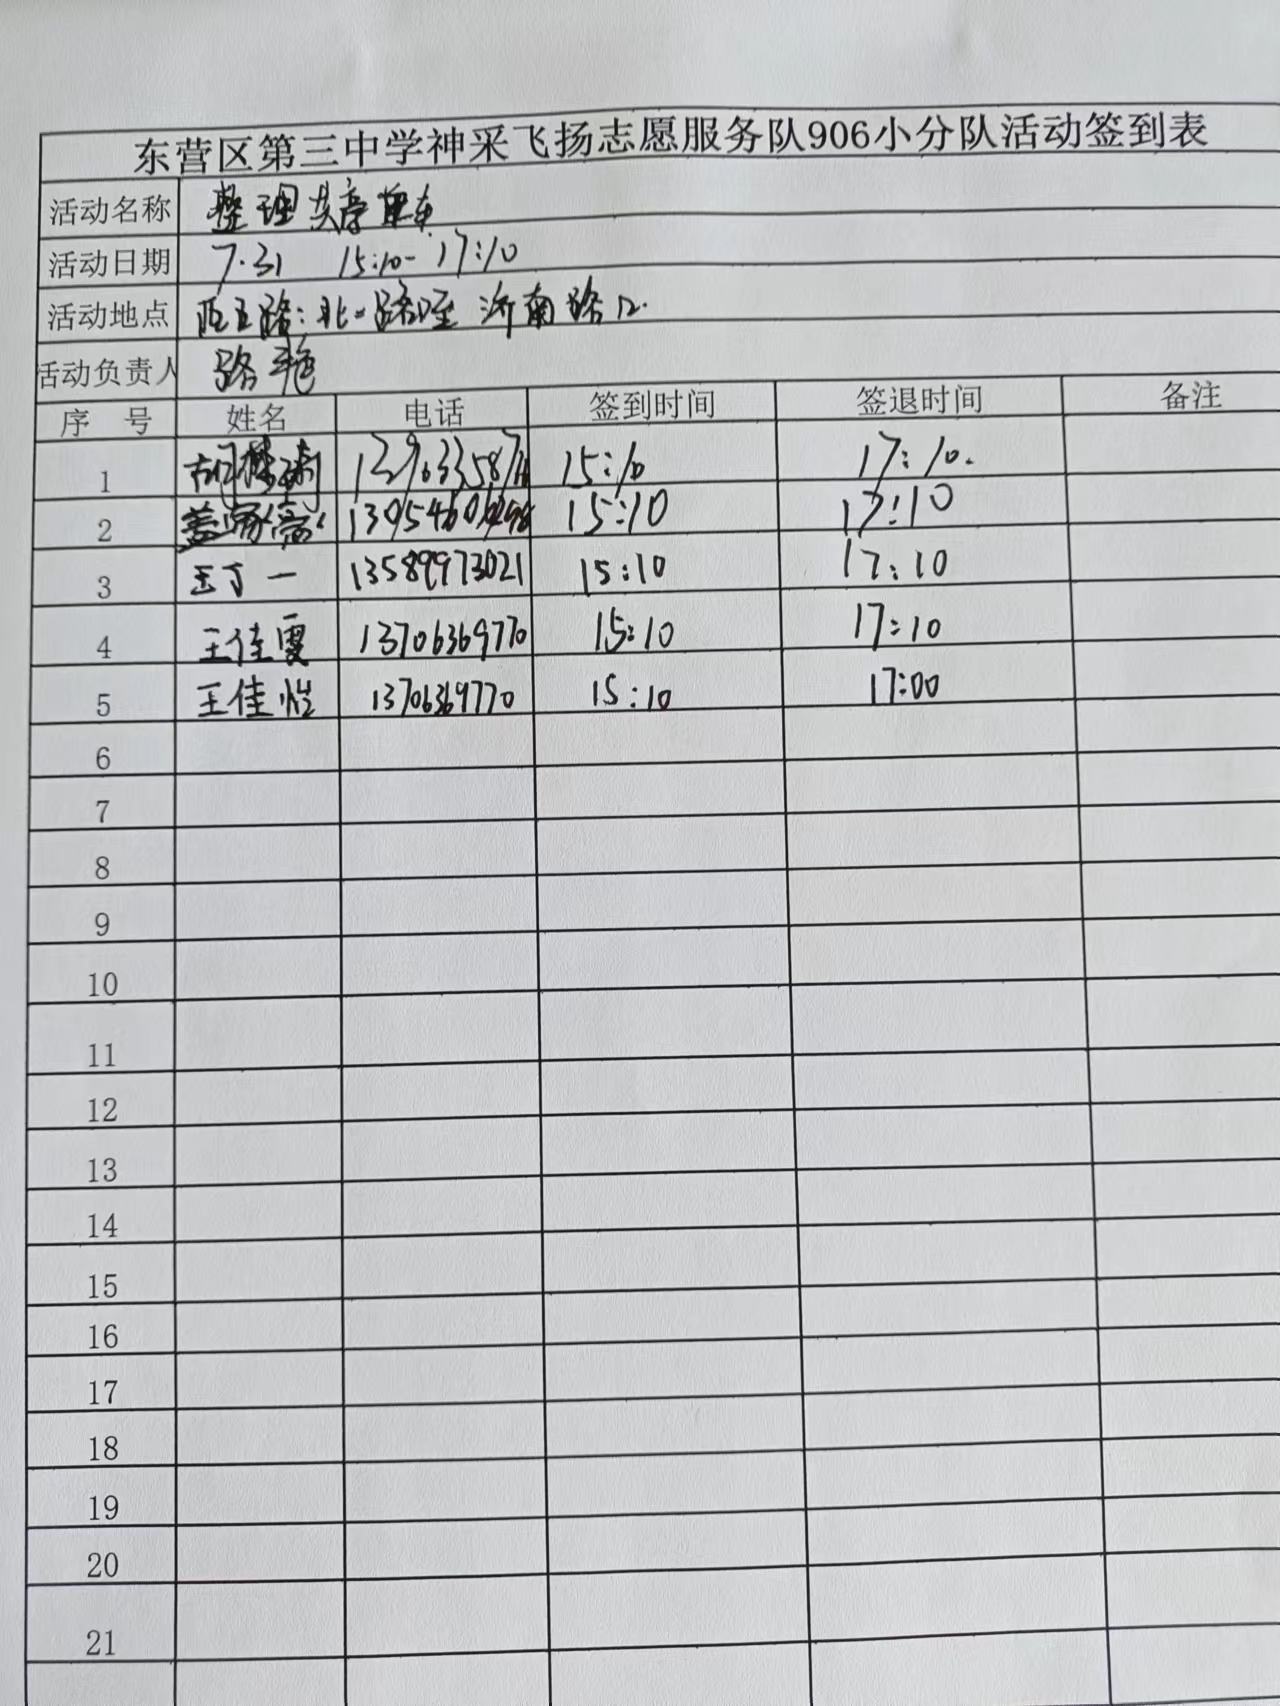 东营区第三中学神采飞扬志愿服务队906小分队活动签到表
活动名称 整理共享单车
活动日期 7.31 15:10-17:10
活动地点 西五路:北一路口至济南路口.
活动负责人 路艳
序 号 姓名 电话 签到时间 签退时间 备注
1 15:10 17:10.
2 15:10 17:10
3 王丁一 13589973021 15:10 17:10
4 王佳雯 13706369770 15:10 17:10
5 王佳怡 13706369770 15:10 17:00
6
7
8
9
10
11
12
13
14
15
16
17
18
19
20
21